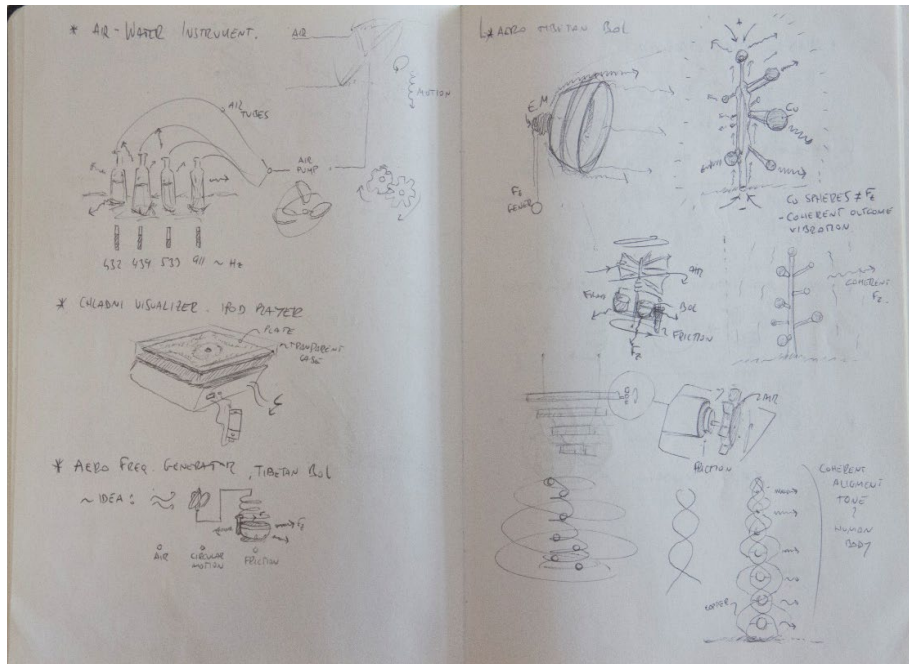 * AIR-WATER INSTRUMENT.
AIR
MOTION
AIR
TUBES
AIR
PUMP
432 439 533 911 ~ Hz
* CHLADNI VISUALIZER. IPOD PLAYER
PLATE
TRANSPARENT
CASE
* AERO FREQ. GENERATOR, TIBETAN BOL
~ IDEA:
Fz
AIR
CIRCULAR
MOTION
FRICTION
AERO TIBETAN BOL
E.M
Fz
GENER
Cu
Cu SPHERES ≠ Fz
- COHERENT OUTCOME
VIBRATION
AIR
BOL
FRICTION
Fz
COHERENT
Fz.
AIR
FRICTION
COHERENT
ALIGMENT
TONE
HUMAN
BODY
COPPER